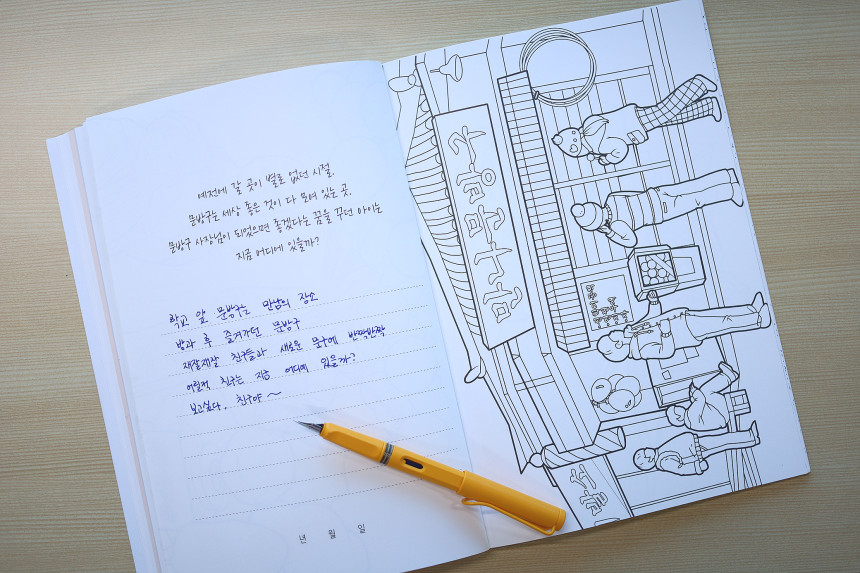 예전에 갈 곳이 별로 없던 시절,
문방구는 세상 좋은 것이 다 모여 있는 곳,
문방구 사장님이 되었으면 좋겠다는 꿈을 꾸던 아이는
지금 어디에 있을까?
학교 앞 문방구는 만남의 장소
방과 후 즐겨가던 문방구
재잘재잘 친구들과 새로운 문구에 반짝반짝
어릴적 친구는 지금 어디에 있을까?
보고싶다, 친구야~
년 월 일